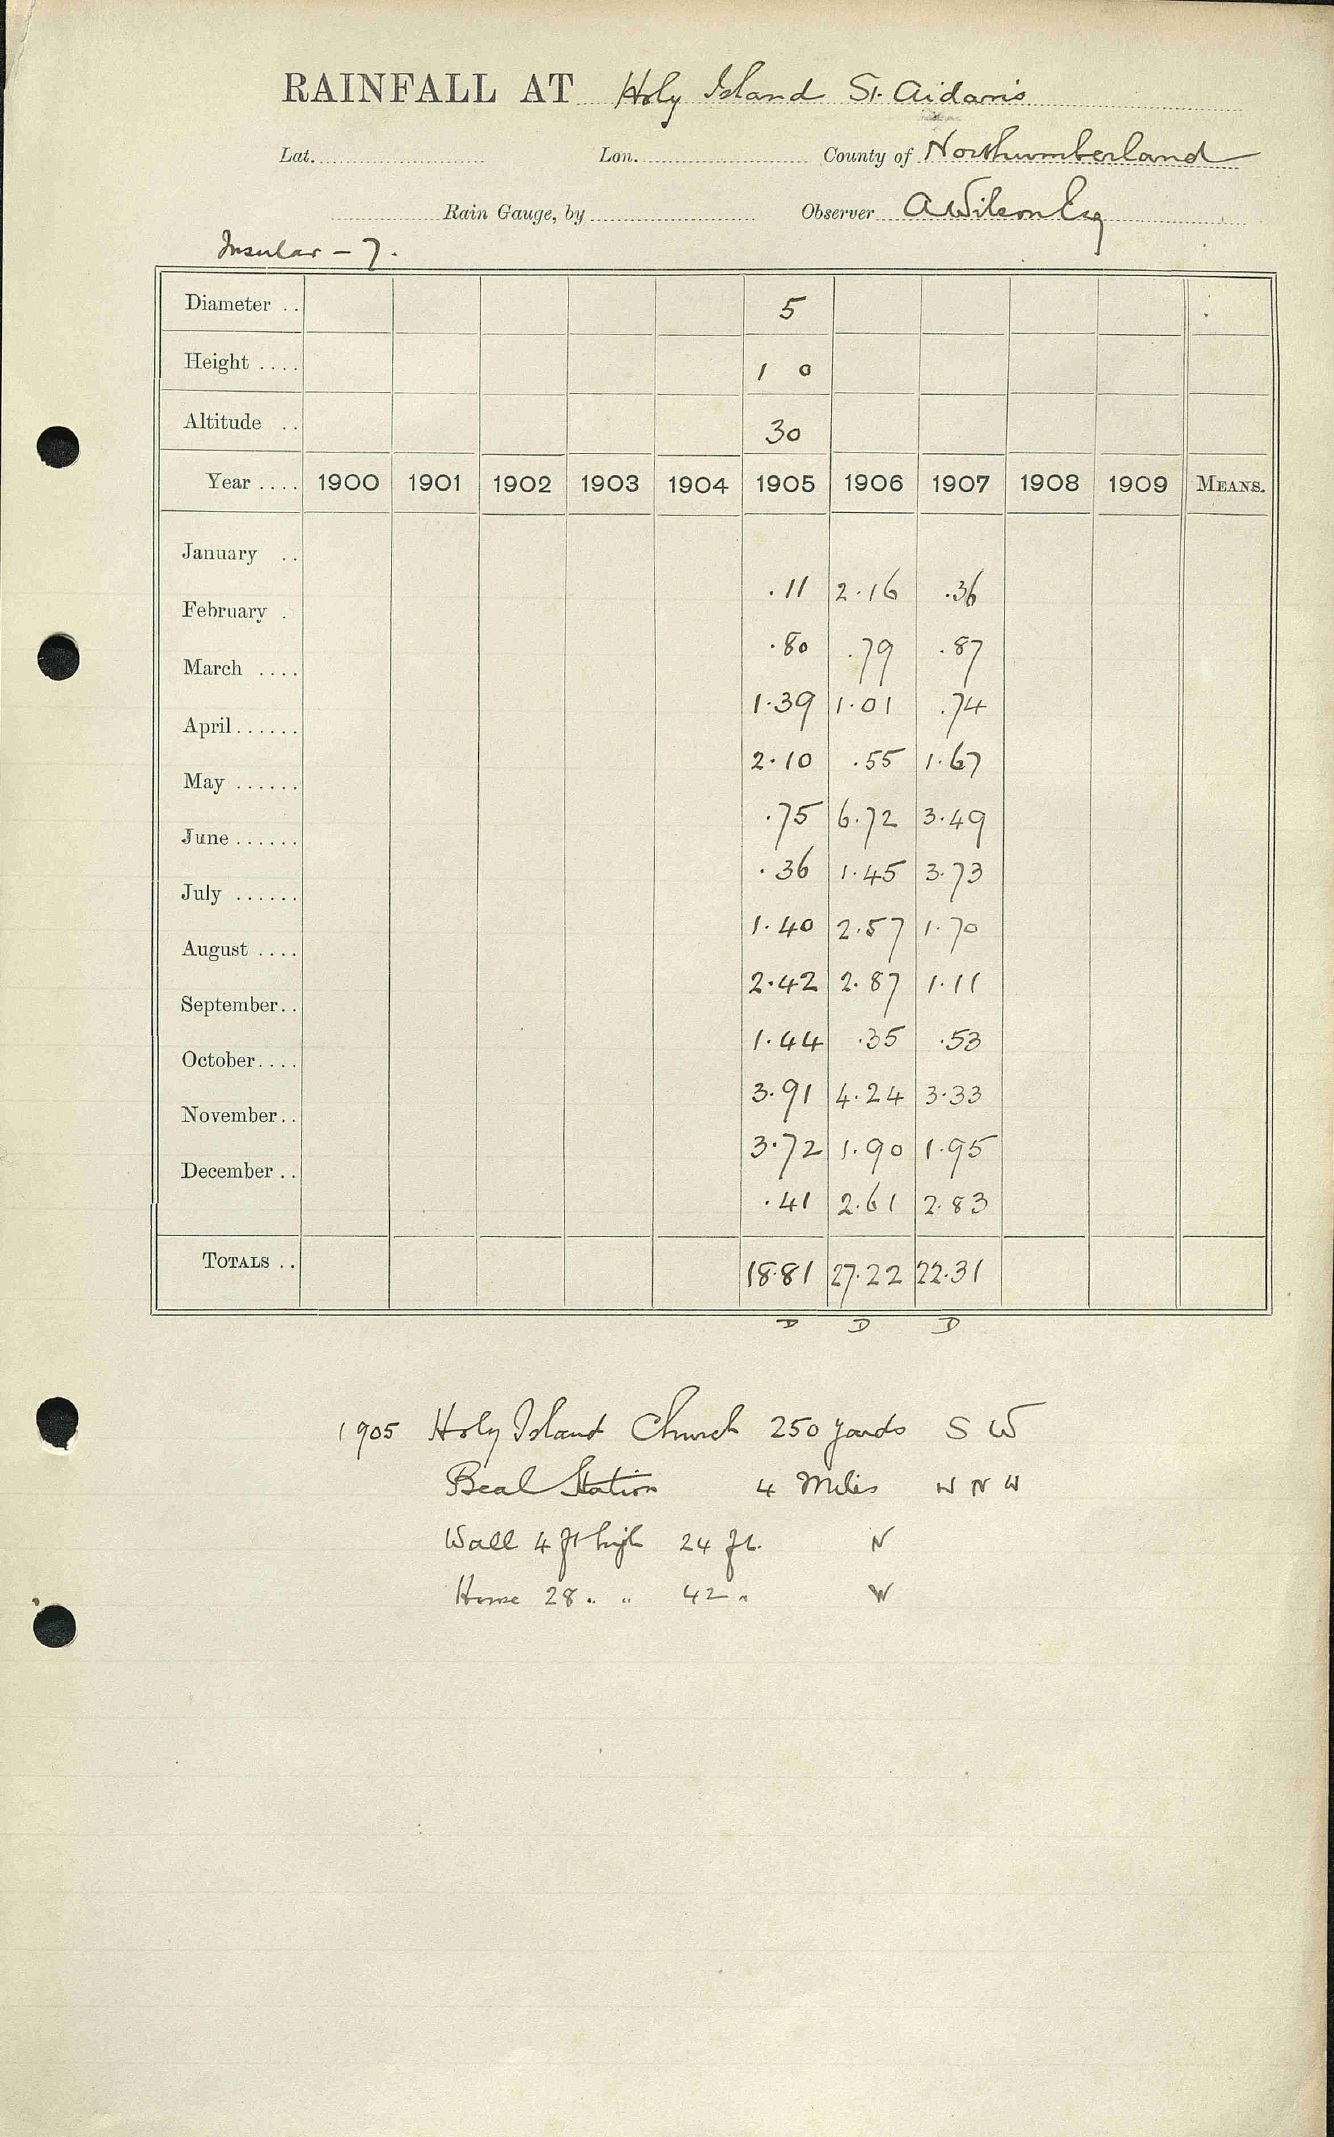 RAINFALL AT Holy Island St. Aidans
Lat. Lon. County of Northumberland
Rain Gauge, by Observer A Wilson Esq
Insular - 7.
Diameter .. 5
Height .... 1 0
Altitude .. 30
Year .... 1900 1901 1902 1903 1904 1905 1906 1907 1908 1909 MEANS.
January .. .11 2.16 .36
February . .80 .79 .87
March .... 1.39 1.01 .74
April...... 2.10 .55 1.67
May ...... .75 6.72 3.49
June ...... .36 1.45 3.73
July ...... 1.40 2.57 1.70
August .... 2.42 2.87 1.11
September.. 1.44 .35 .53
October.... 3.91 4.24 3.33
November.. 3.72 1.90 1.95
December .. .41 2.61 2.83
TOTALS .. 18.81 27.22 22.31
D D D
1905 Holy Island Church 250 yards S W
Beal Station 4 Miles W N W
Wall 4 ft high 24 ft. N
House 28 " " 42 " W